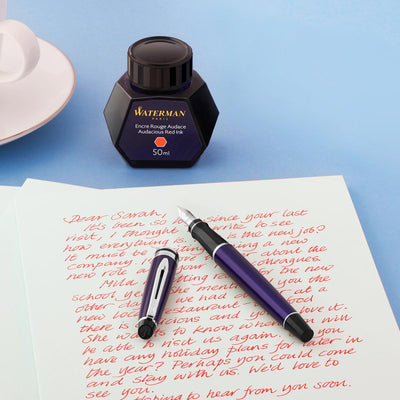 WATERMAN
PARIS
Encre Rouge Audace
Audacious Red Ink
50ml
Dear Sarah,
It's been so since your last
visit, I thought write to see
how everything is the new job?
It must be ting a new
company about the
new role leagues.
Mila ting the new
school. She you the
other day. had at a
new local restaurant food
there is ious and love it.
She wants to know when will
be able to visit us again. Do you
have any holiday plans for later in
the year? Perhaps you could come
and stay with us. We'd love to
see you.
Hoping to hear from you soon.